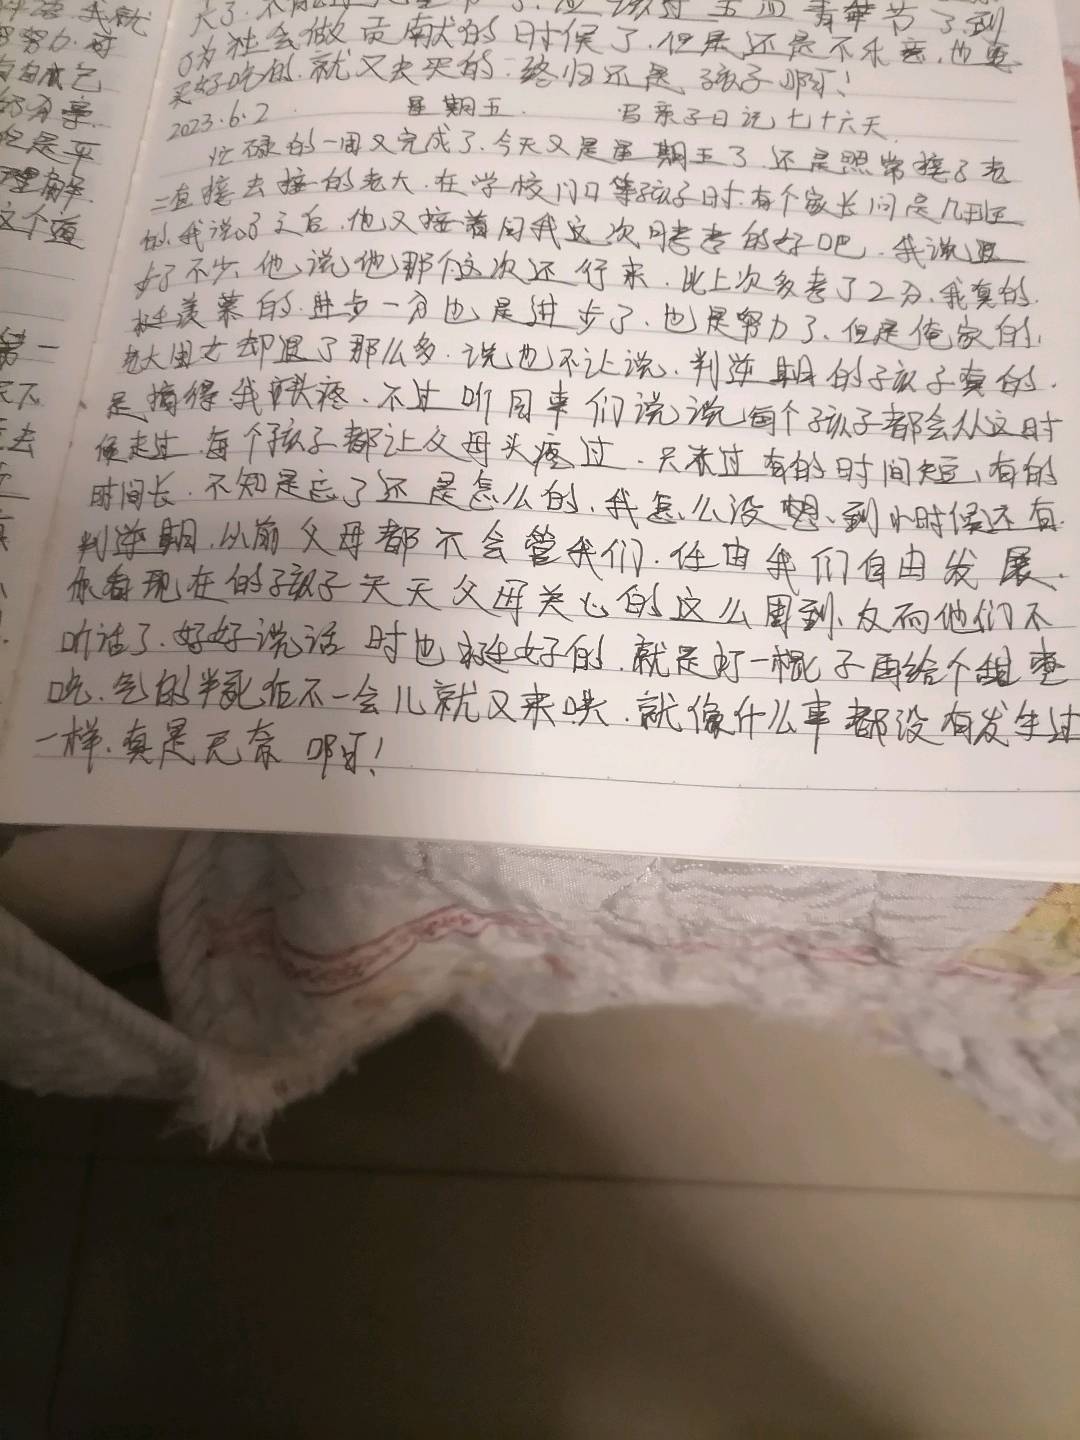 大了.
青年节了.到
为社会做贡献的时候了.但是还是不乐意.也要
买好吃的.就又去买的.终归还是孩子啊!
2023.6.2 星期五. 写亲子日记七十六天.
忙碌的一周又完成了.今天又是星期五了.还是照常接了老
二直接去接的老大.在学校门口等孩子时.有个家长问是几班
的.我说了之后.他又接着问我这次月考考的好吧.我说退
好了不少.他说他那个这次还行来.比上次多考了2分.我真的.
挺羡慕的.进步一分也是进步了.也是努力了.但是俺家的.
老大闺女却退了那么多.说也不让说.判逆期的孩子真的.
是搞得我头疼.不过听同事们说说每个孩子都会从这时
候走过.每个孩子都让父母头疼过.只不过有的时间短、有的
时间长.不知是忘了还是怎么的.我怎么没想到小时候还有
判逆期.以前父母都不会管我们.任由我们自由发展.
你看现在的孩子天天父母关心的这么周到.反而他们不
听话了.好好说话时也挺好的.就是打一棍子再给个甜枣
吃.气的半死后不一会儿就又来哄.就像什么事都没有发生过
一样.真是无奈啊!
我就
努力.可
自己
分享.
但是.平
理解.
这个道
第一
不
去